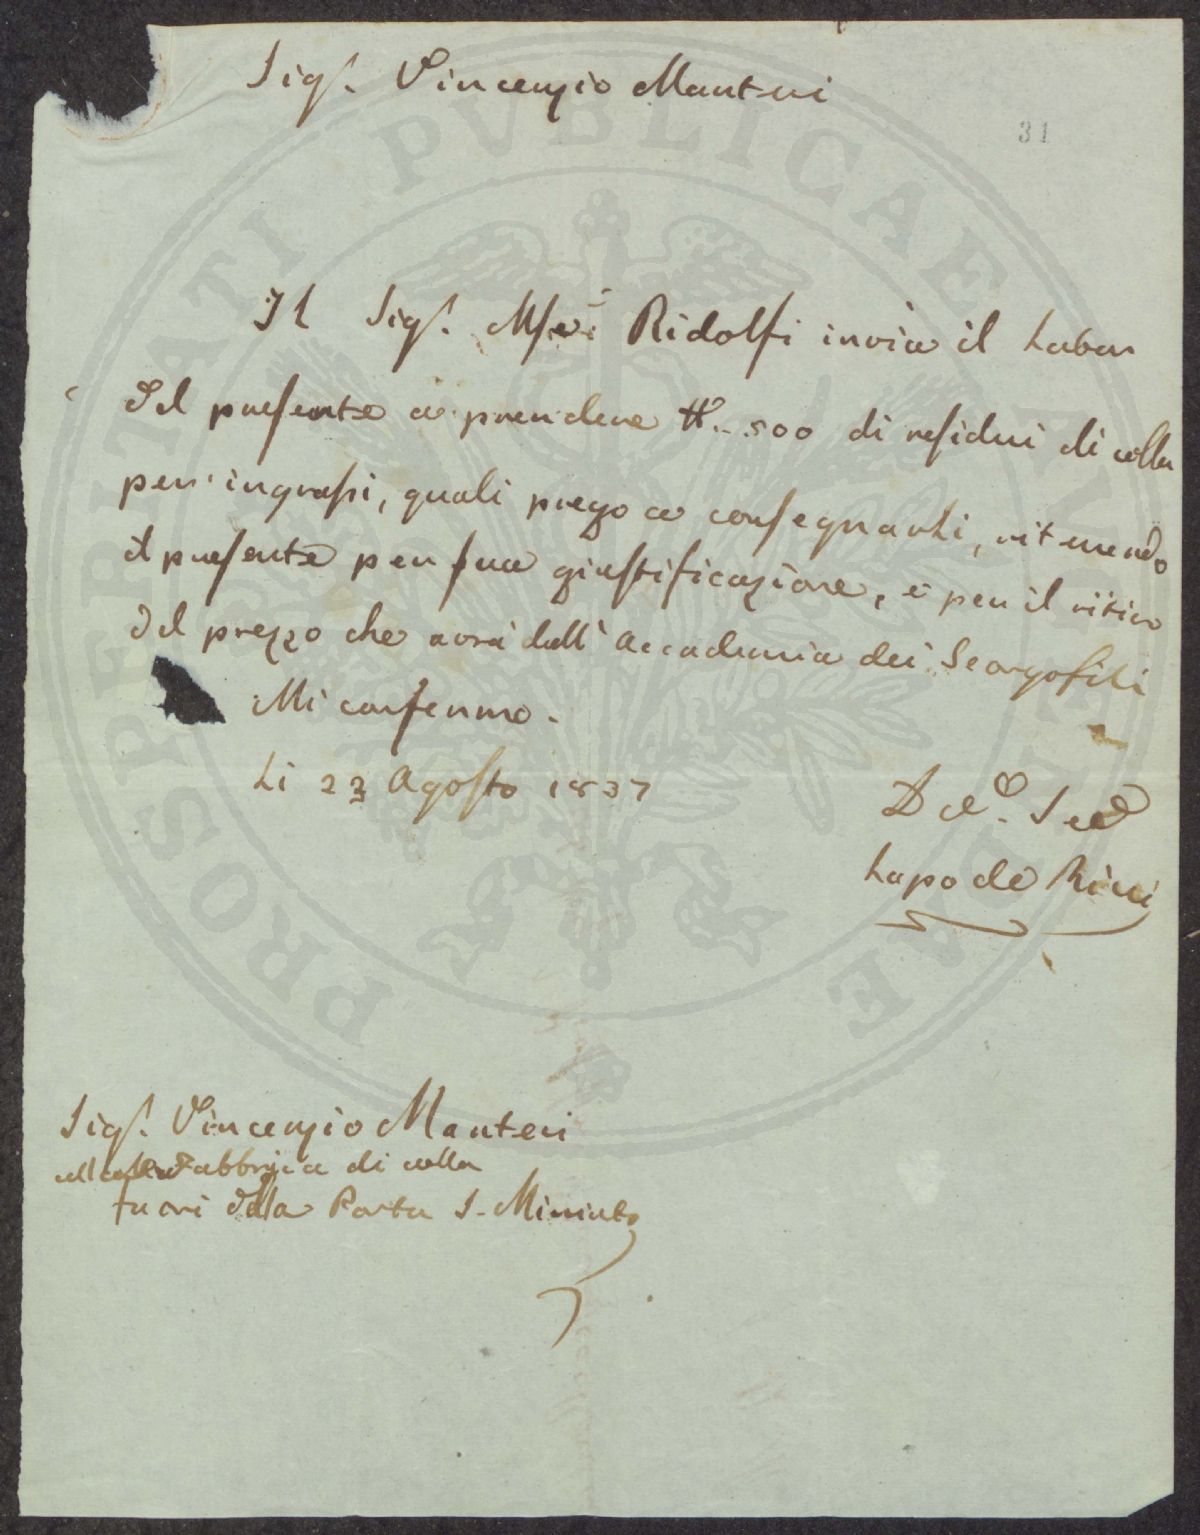 Sig.r Vincenzio Manteri
31
Il Sig.r Mse Ridolfi invia il Lator
del presente a prendere ℔. 500 di residui di colla
per ingrassi, quali prego a consegnarli, ritenendo
il presente per sua giustificazione, e per il ritiro
del prezzo che avrà dall' Accademia dei Georgofili
Mi confermo.
Li 23 Agosto 1837
Lapo de Ricci
Sig.r Vincenzio Manteri
alla Fabbrica di colla
fuori della Porta S. Miniato
PROSPERITATI PVBLICAE AVGENDAE